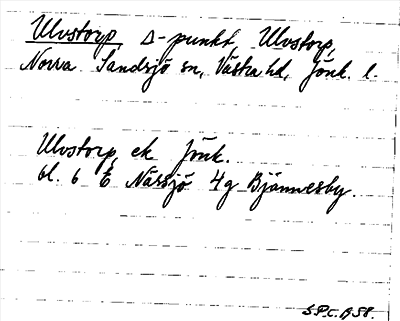 Ulvstorp, Δ-punkt, Ulvstorp,
Norra Sandsjö sn, Västra hd, Jönk. l.
Ulvstorp, ek Jönk.
bl. 6 E Nässjö 4g Bjännesby.
S.P.C. A58.